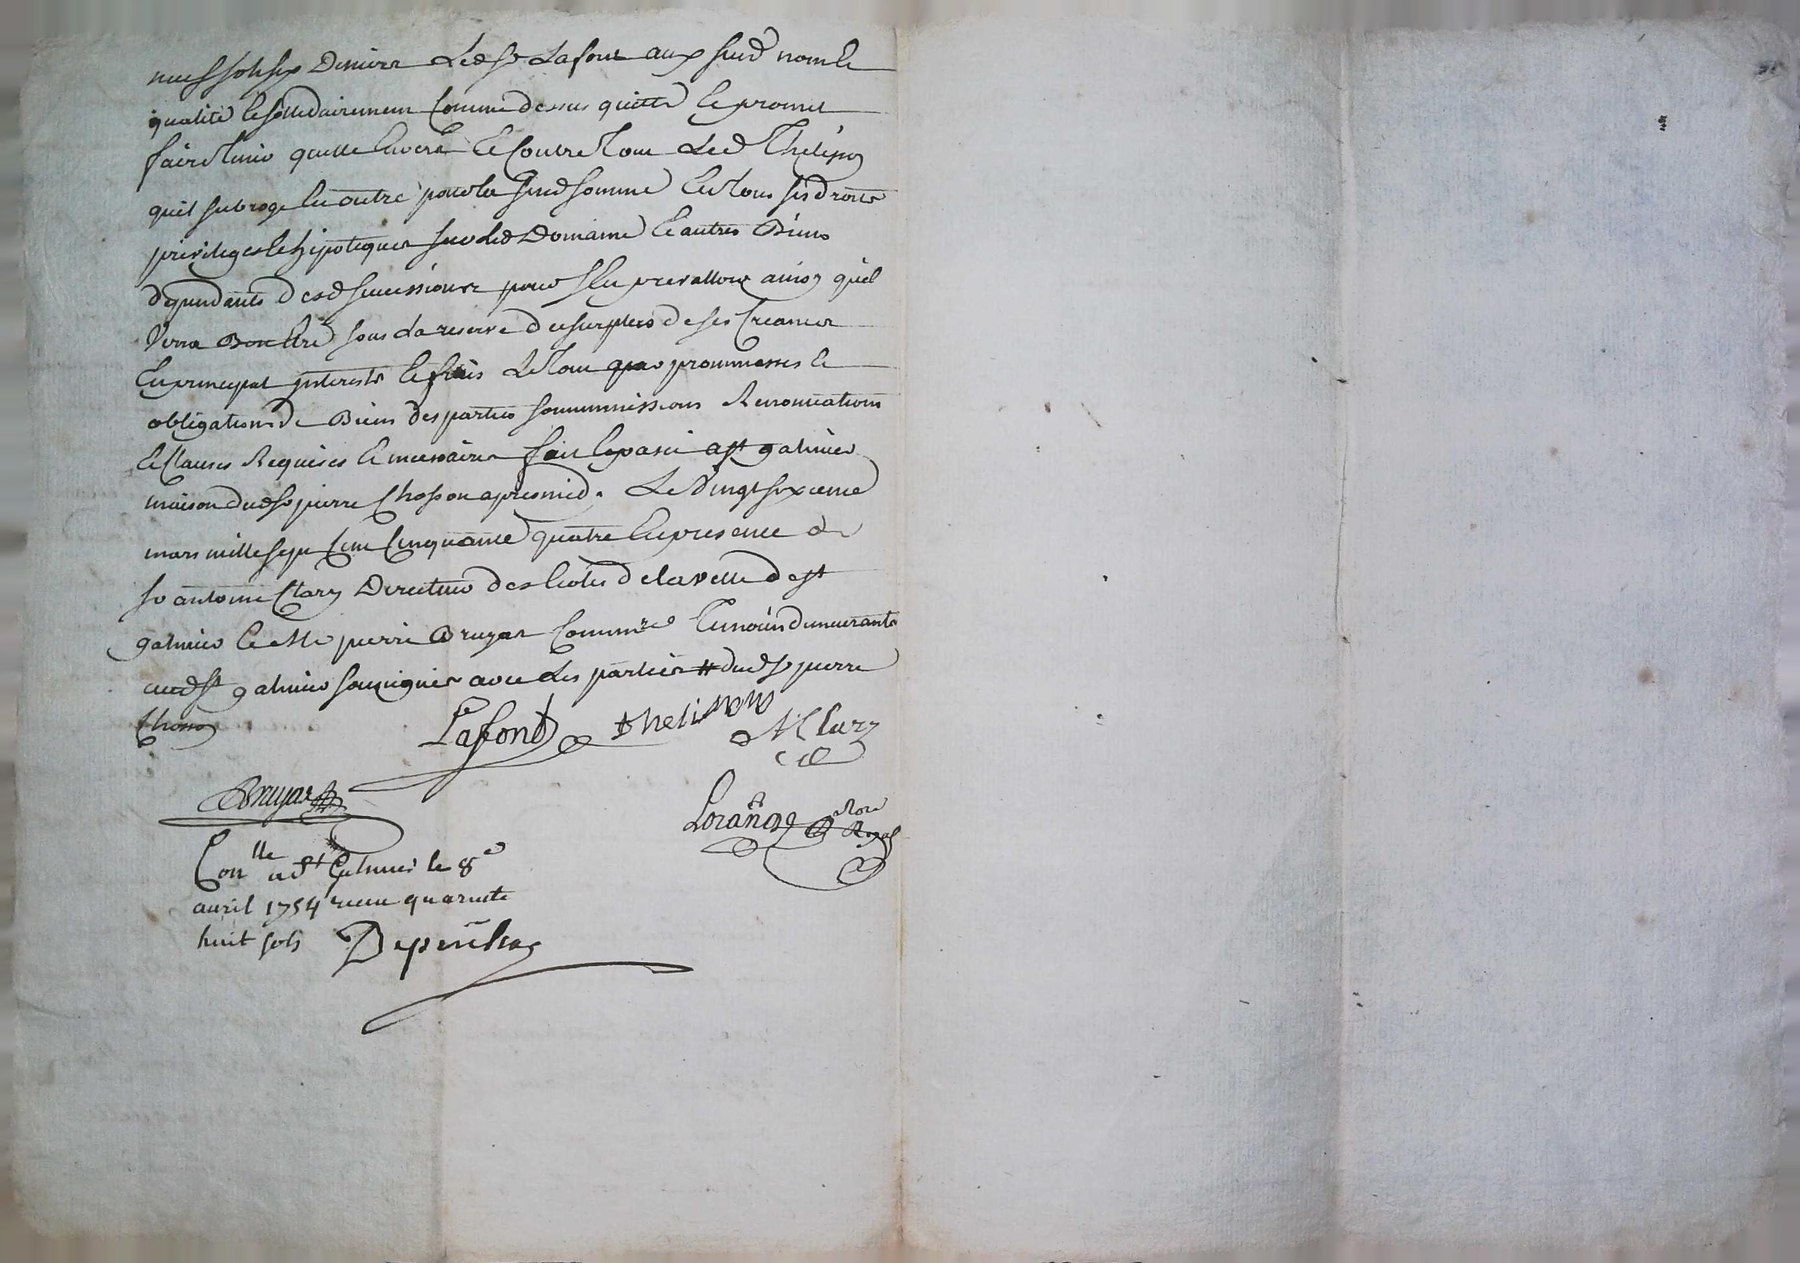 neuf sols six deniers Led sr Lafont aux susd noms &
qualité & sollidairement comme dessus quitte & promet
faire tenir quitte Envers & contre tous Led Thelisson
quil subroge En outre pour la susd somme En tous ses droits
privileges & hipoteques sur led Domaine & autres Biens
dependants desd successions pour sen prevalloir ainsy quil
verra Bon Etre sous La reserve du surplus de ses Creances
En principal interests & frais Le tout par prommesses &
obligations de Biens des parties soummissions Renontiations
& Clauses Requises & necessaires fait & passé a st galmier
maison dud sr pierre Chosson apres midy Le vingt sixieme
mars mille sept Cent Cinquante quatre En presence de
sr antoine Clary Directeur des Ecoles de la ville de st
galmier & Me pierre Bruyas Commre temoins demeurants
aud st galmier soussignés avec Les parties # dud sr pierre
Chosson
Lafont Thelisson A Clary
Bruyas
Lorange Nore Royal
Conlle a st Galmier le 8e
avril 1754 recu quarante
huit sols Depeucha